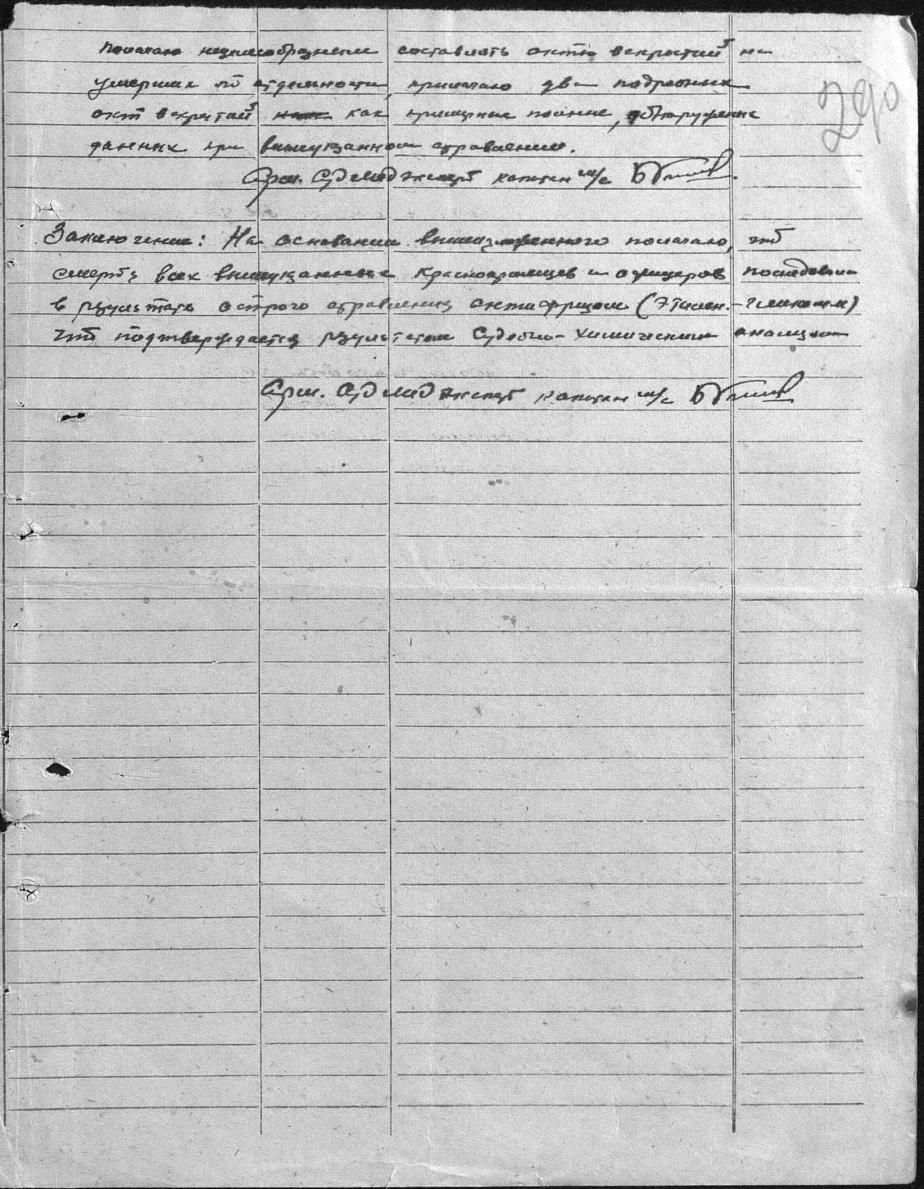 290
Полагаю нецелесообразным составлять акты вскрытий на
умерших по отдельности, прилагаю два подробных
акт вскрытий как примерные полные, обнаружение
данных при вышеуказанном отравлении.
Арм. Судмедэксперт капитан м/с
Заключение: На основании вышеизложенного полагаю, что
смерть всех вышеуказанных Красноармейцев и офицеров последовала
в результате острого отравления антифризом (Этилен-гликолем)
что подтверждается результатом Судебно-химическим анализом
Арм. Судмедэксперт капитан м/с